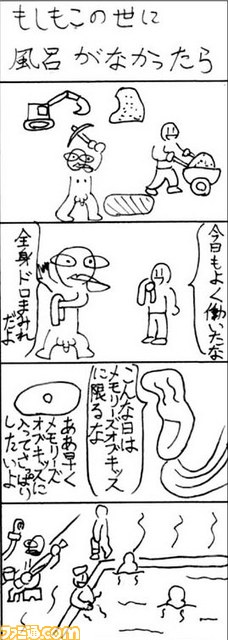 もしもこの世に
風呂がなかったら
今日もよく働いたな
全身ドロまみれ
だよ
こんな日は
メモリーズオブキッズ
に限るな
ああ早く
メモリーズ
オブキッズに
入ってさっぱり
したいよ
ファミ通.com